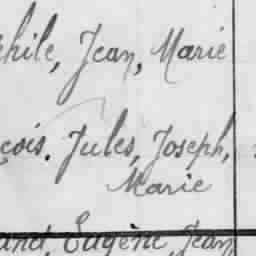 phile, Jean, Marie
çois. Jules, Joseph,
Marie
and, Eugène, Jean